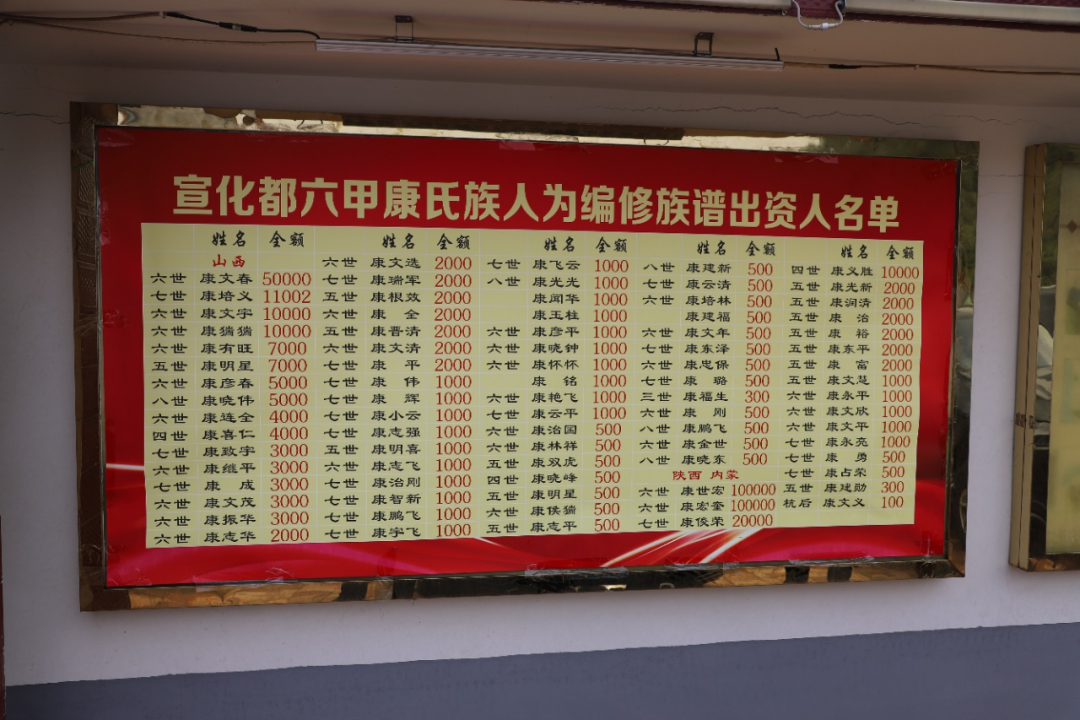 宣化都六甲康氏族人为编修族谱出资人名单
姓名 金额
山西
六世 康文春 50000
七世 康培义 11002
六世 康文宇 10000
六世 康犓犓 10000
六世 康有旺 7000
五世 康明星 7000
六世 康彦春 5000
八世 康晓伟 5000
六世 康连全 4000
四世 康喜仁 4000
七世 康政宇 3000
六世 康继平 3000
七世 康成 3000
六世 康文茂 3000
六世 康振华 3000
六世 康志华 2000
姓名 金额
六世 康文选 2000
七世 康瑞军 2000
五世 康根效 2000
六世 康全 2000
五世 康晋清 2000
六世 康文清 2000
七世 康平 2000
七世 康伟 1000
七世 康辉 1000
七世 康小云 1000
七世 康志强 1000
五世 康明喜 1000
六世 康志飞 1000
七世 康治刚 1000
七世 康智新 1000
七世 康鹏飞 1000
七世 康宇飞 1000
姓名 金额
七世 康飞云 1000
八世 康光光 1000
康闻华 1000
康玉柱 1000
六世 康彦平 1000
六世 康晓钟 1000
六世 康怀怀 1000
康铭 1000
六世 康艳飞 1000
七世 康云平 1000
六世 康治国 500
六世 康林祥 500
五世 康双虎 500
四世 康晓峰 500
五世 康明星 500
六世 康侯 500
五世 康志平 500
姓名 金额
八世 康建新 500
七世 康云清 500
六世 康培林 500
康建福 500
六世 康文年 500
七世 康东泽 500
六世 康忠保 500
七世 康璐 500
三世 康福生 300
六世 康刚 500
八世 康鹏飞 500
六世 康金世 500
八世 康晓东 500
陕西 内蒙
六世 康世宏 100000
六世 康宏奎 100000
七世 康俊荣 20000
姓名 金额
四世 康义胜 10000
五世 康光新 2000
五世 康润清 2000
五世 康治 2000
五世 康裕 2000
五世 康东平 2000
五世 康富 2000
五世 康文慧 1000
六世 康永平 1000
六世 康文欣 1000
六世 康文平 1000
七世 康永亮 1000
七世 康勇 500
七世 康占荣 500
五世 康建勋 300
杭后 康文义 100